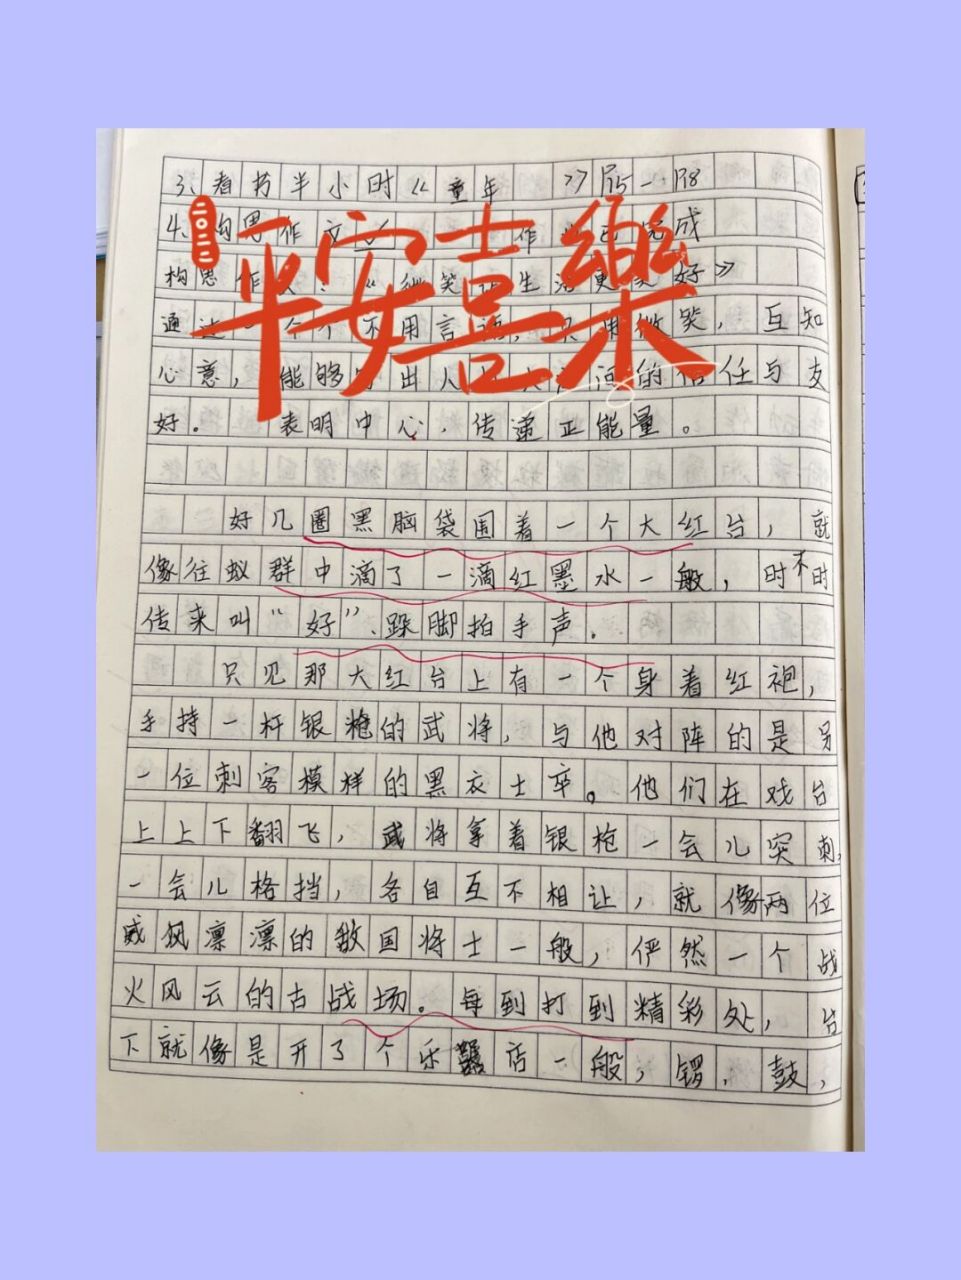 3、看书半小时《童年 》P15—P18
二〇二二
平安喜樂
4、构思作文 作 完成
构思作文：《微笑让生活更美好》
通过一个个不用言语，只用微笑，互知
心意，能够 出人 的信任与支
好。 表明中心，传递正能量。
好几圈黑脑袋围着一个大红台，就
像往蚁群中滴了一滴红墨水一般，时不时
传来叫“好”、跺脚拍手声。
只见那大红台上有一个身着红袍，
手持一杆银枪的武将，与他对阵的是另
一位刺客模样的黑衣士卒。他们在戏台
上上下翻飞，武将拿着银枪一会儿突刺，
一会儿格挡，各自互不相让，就像两位
威风凛凛的敌国将士一般，俨然一个战
火风云的古战场。每到打到精彩处，台
下就像是开了个乐器店一般，锣，鼓，